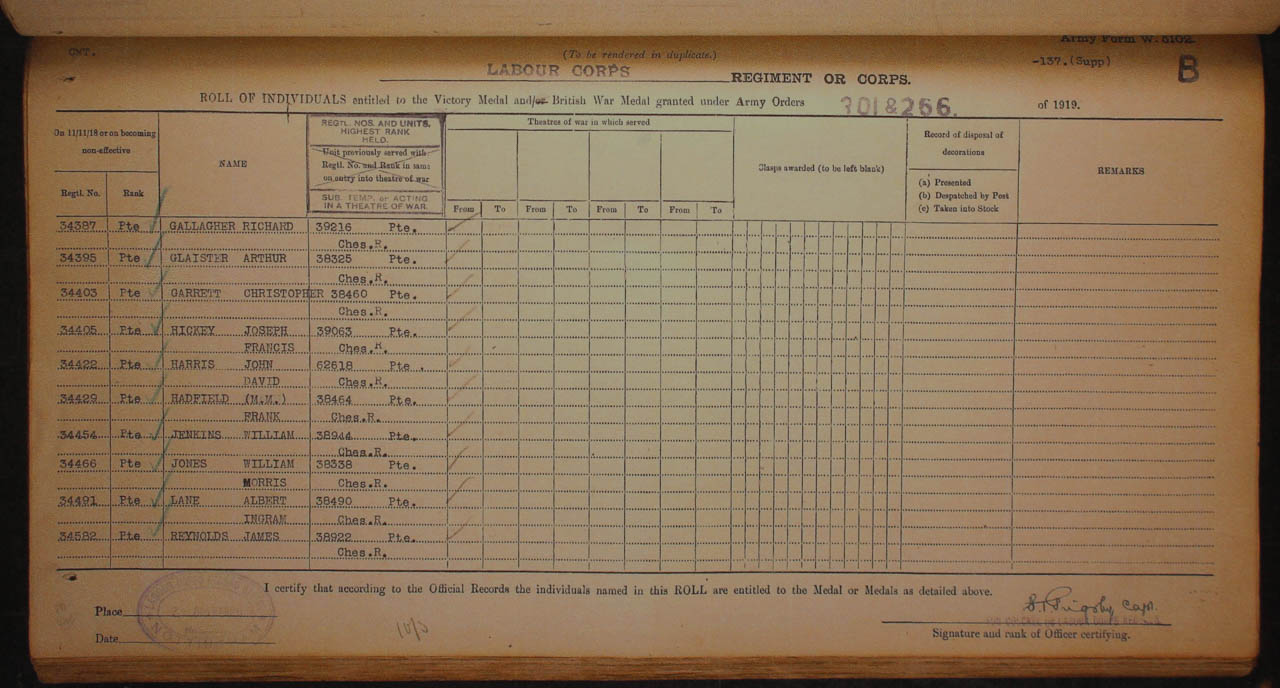 CNT.
(To be rendered in duplicate.)
Army Form W. 5102.
LABOUR CORPS REGIMENT OR CORPS.
-137.(Supp)
B
ROLL OF INDIVIDUALS entitled to the Victory Medal and/or British War Medal granted under Army Orders 301 & 266. of 1919.
On 11/11/18 or on becoming non-effective
Regtl. No.
Rank
NAME
REGTL. NOS. AND UNITS,
HIGHEST RANK
HELD.
Unit previously served with
Regtl. No. and Rank in same
on entry into theatre of war
SUB. TEMP. or ACTING
IN A THEATRE OF WAR.
Theatres of war in which served
From To From To From To From To
Clasps awarded (to be left blank)
Record of disposal of
decorations
(a) Presented
(b) Despatched by Post
(c) Taken into Stock
REMARKS
34387 Pte GALLAGHER RICHARD 39216 Pte.
Ches.R.
34395 Pte GLAISTER ARTHUR 38325 Pte.
Ches.R.
34403 Pte GARRETT CHRISTOPHER 38460 Pte.
Ches.R.
34405 Pte HICKEY JOSEPH 39063 Pte.
FRANCIS Ches.R.
34422 Pte HARRIS JOHN 62618 Pte .
DAVID Ches.R.
34429 Pte HADFIELD (M.M.) 38464 Pte.
FRANK Ches.R.
34454 Pte JENKINS WILLIAM 38944 Pte.
Ches.R.
34466 Pte JONES WILLIAM 38338 Pte.
MORRIS Ches.R.
34491 Pte LANE ALBERT 38490 Pte.
INGRAM Ches.R.
34582 Pte REYNOLDS JAMES 38922 Pte.
Ches.R.
I certify that according to the Official Records the individuals named in this ROLL are entitled to the Medal or Medals as detailed above.
Place
Date
10/3
Capt.
Signature and rank of Officer certifying.